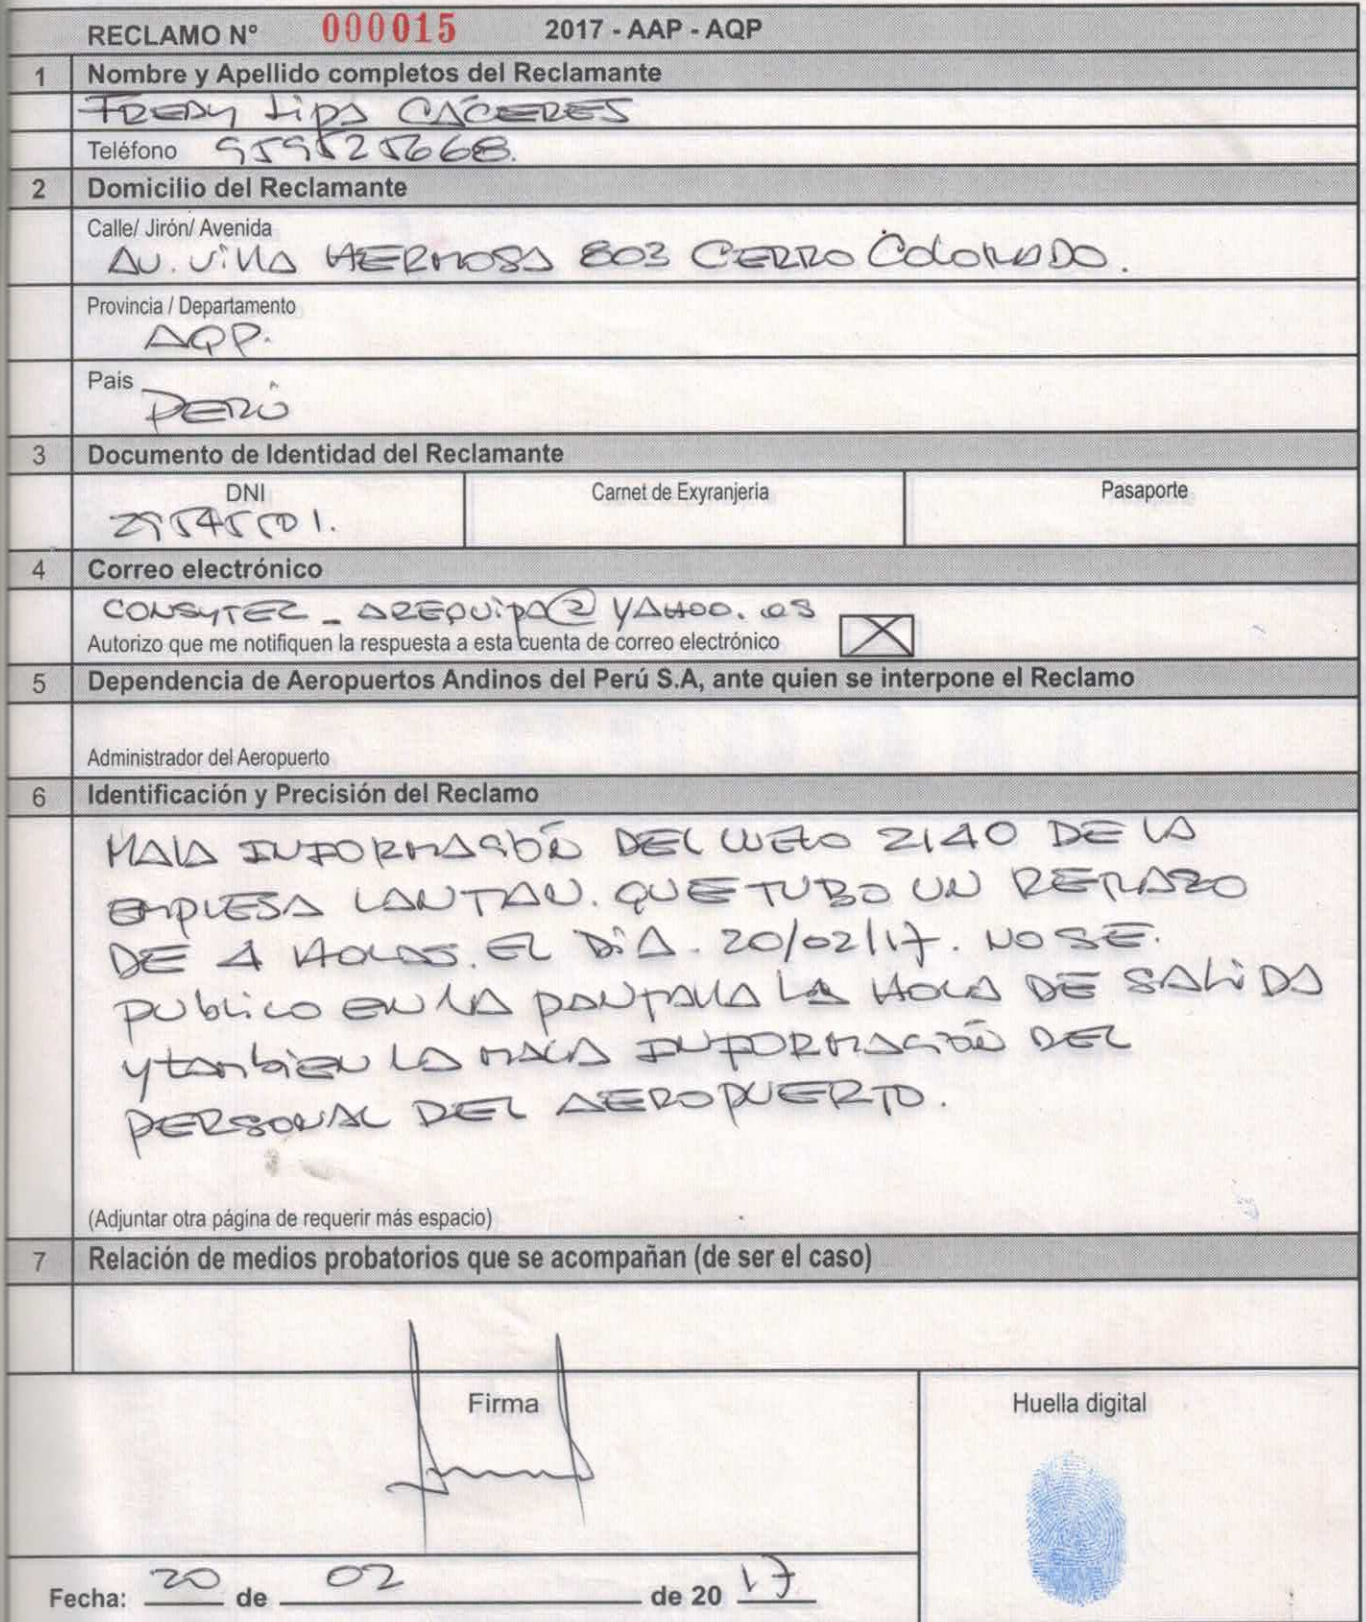 RECLAMO N° 000015 2017 - AAP - AQP
1 Nombre y Apellido completos del Reclamante
FREDY LIPA CÁCERES
Teléfono 959525668.
2 Domicilio del Reclamante
Calle/ Jirón/ Avenida
AV. VILLA HERMOSA 803 CERRO COLORADO.
Provincia / Departamento
AQP.
Pais
PERÚ
3 Documento de Identidad del Reclamante
DNI Carnet de Exyranjeria Pasaporte
4 Correo electrónico
CONSYTEC_AREQUIPA@YAHOO.ES
Autorizo que me notifiquen la respuesta a esta cuenta de correo electrónico X
5 Dependencia de Aeropuertos Andinos del Perú S.A, ante quien se interpone el Reclamo
Administrador del Aeropuerto
6 Identificación y Precisión del Reclamo
MALA INFORMACIÓN DEL VUELO 2140 DE LA
EMPRESA LANTAN. QUE TUBO UN RETRAZO
DE 4 HORAS. EL DÍA. 20/02/17. NO SE.
PUBLICO EN LA PANTALLA LA HORA DE SALIDA
Y TANBIEN LA MALA INFORMACIÓN DEL
PERSONAL DEL AEROPUERTO.
(Adjuntar otra página de requerir más espacio)
7 Relación de medios probatorios que se acompañan (de ser el caso)
Firma Huella digital
Fecha: 20 de 02 de 20 17